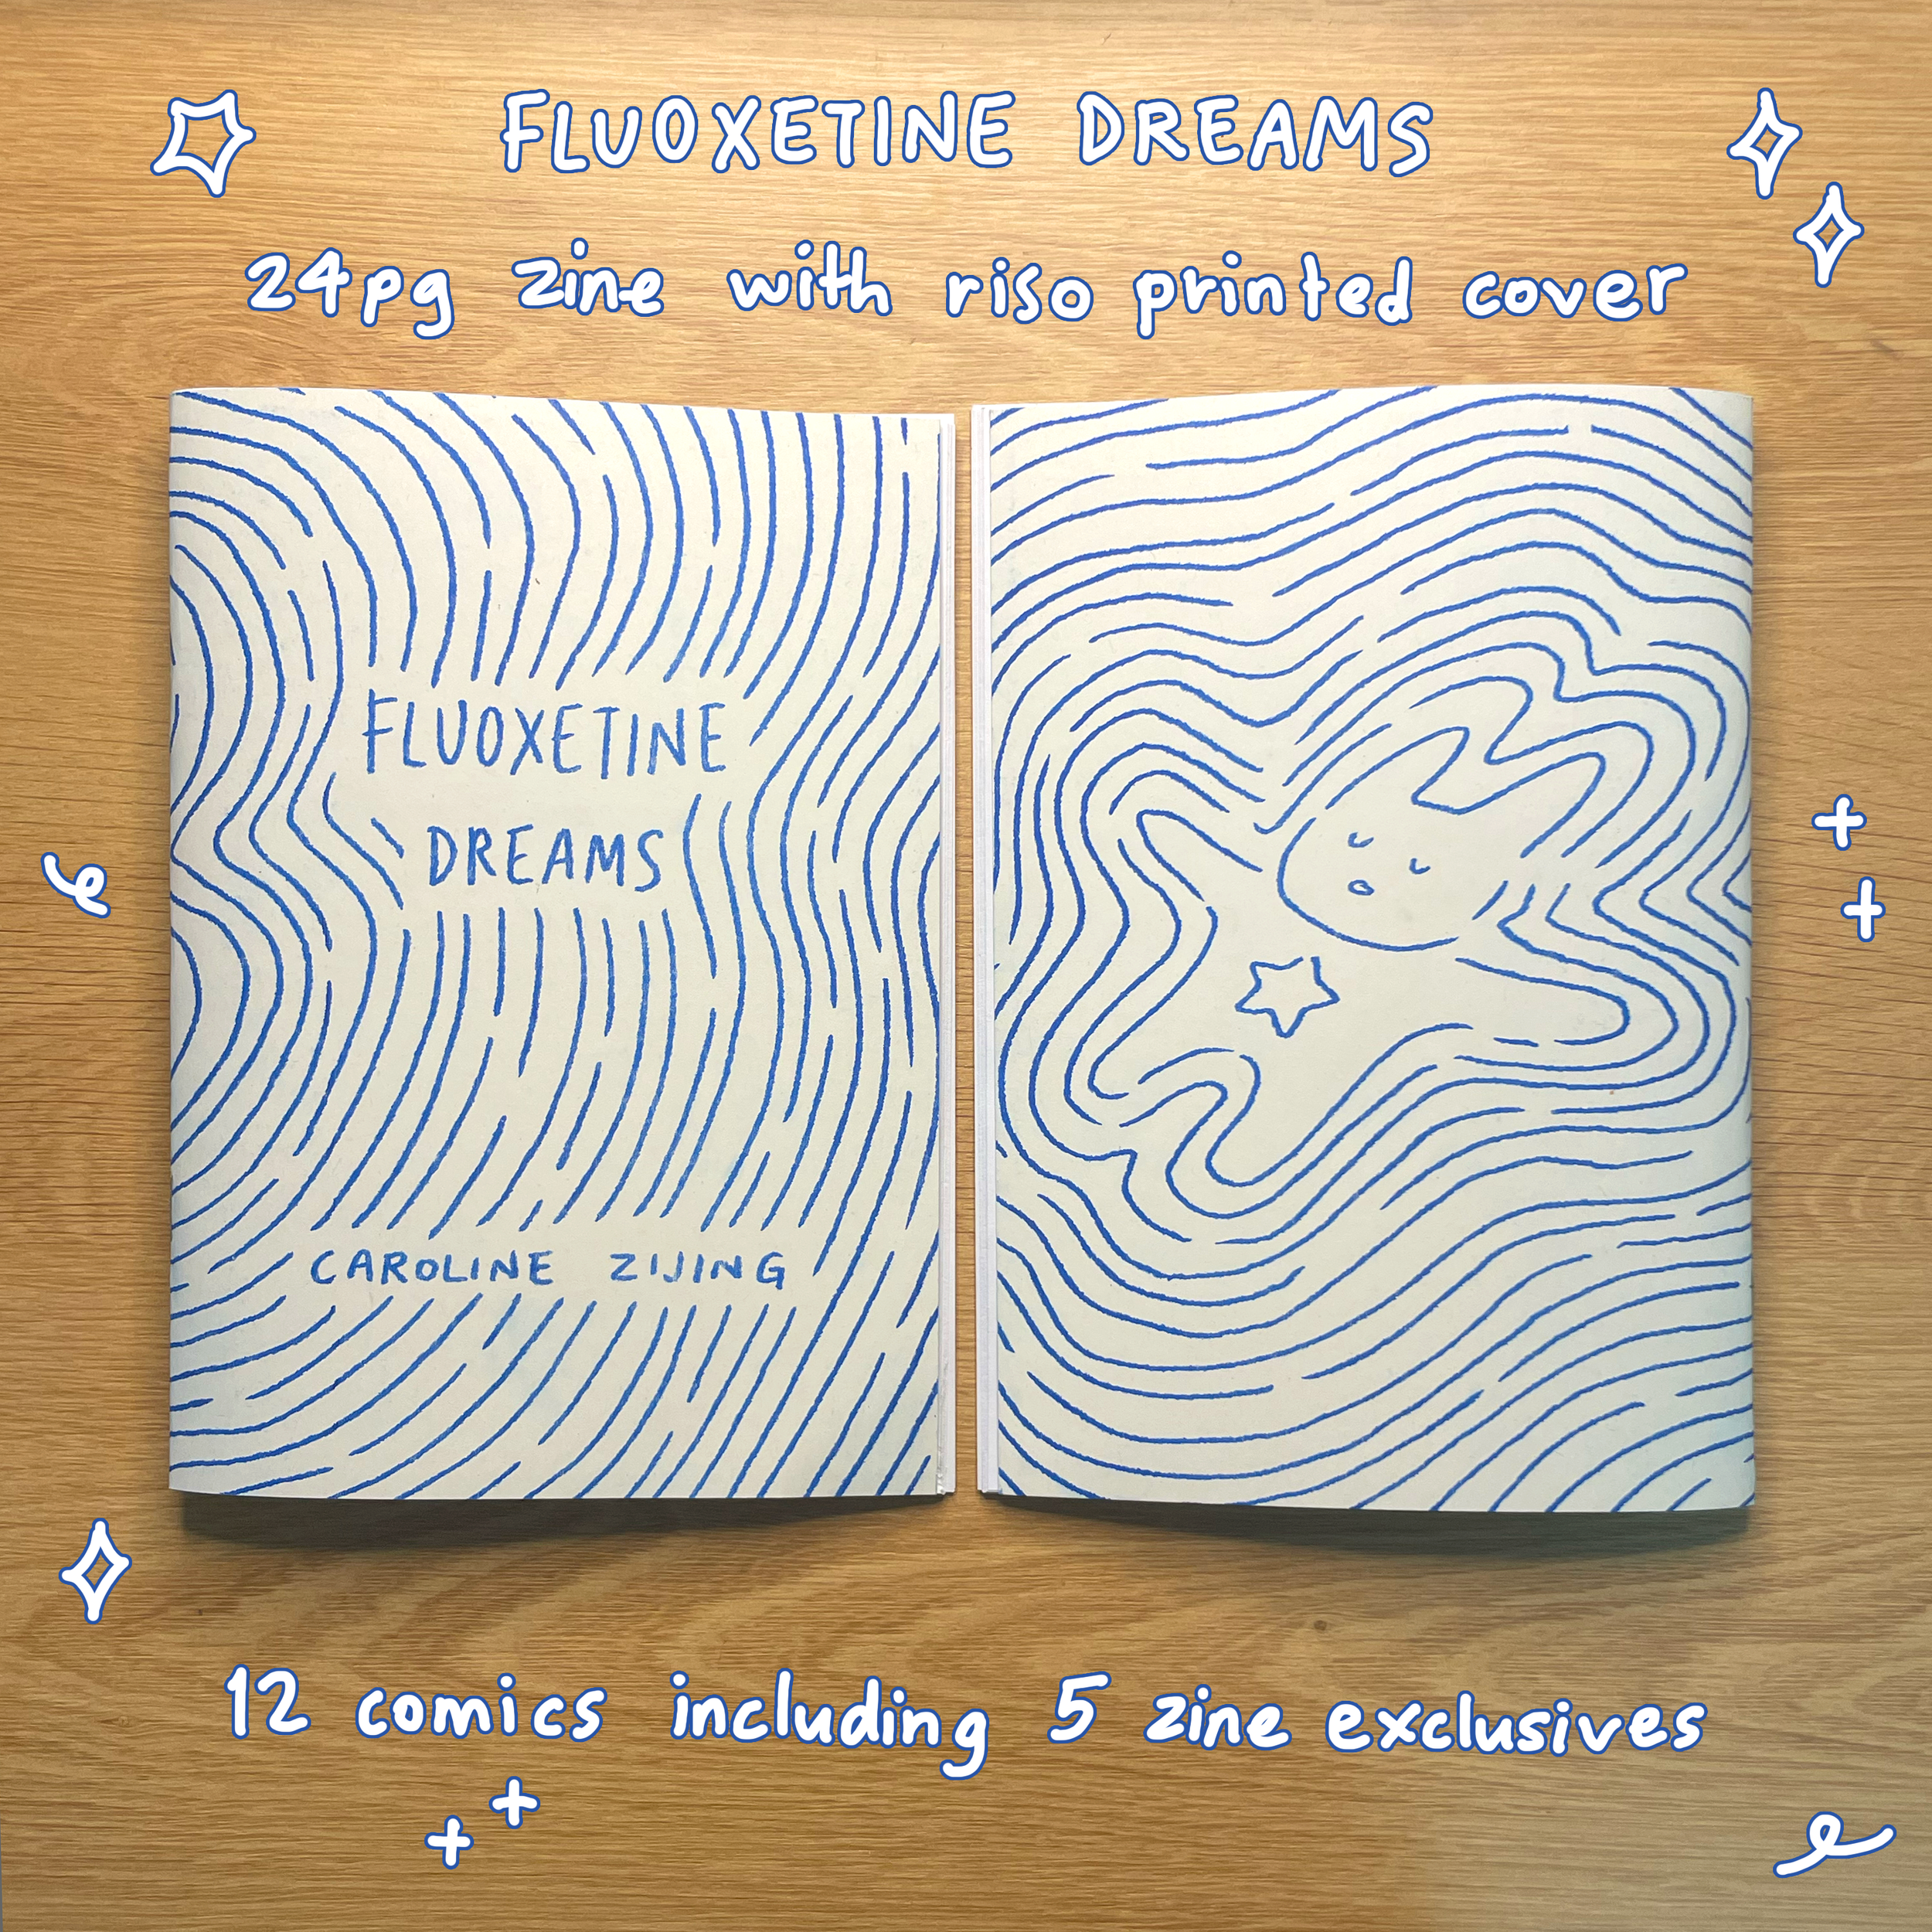 FLUOXETINE DREAMS
24pg zine with riso printed cover
FLUOXETINE
DREAMS
CAROLINE ZIJING
12 comics including 5 zine exclusives